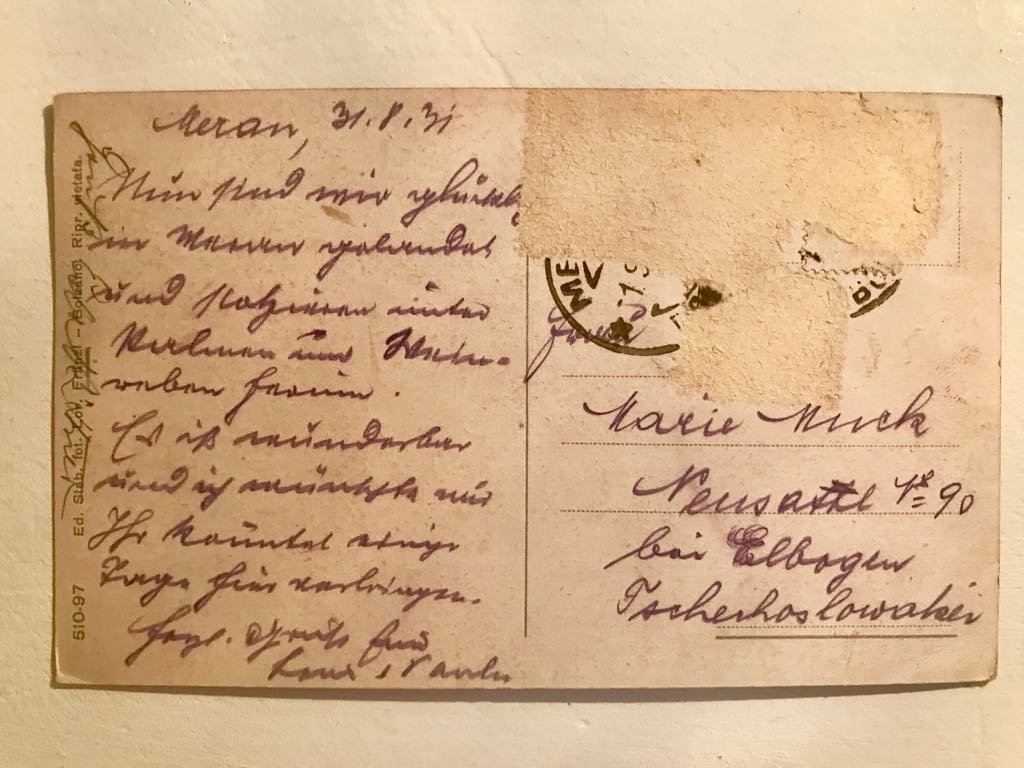 Meran, 31.8.31
Nun sind wir glückl
in Meran gelandet
und stolzieren unter
Palmen und Wein-
reben herum.
Es ist wunderbar
und ich wünschte nur
Ihr könntet einige
Tage hier verbringen.
herzl. Grüße
Ed. Stab. fot. Lov. Fränzl - Bolzano. Ripr. vietata.
510-97
ME
Marie Muck
Neusattl 90
bei Elbogen
Tschechoslowakei